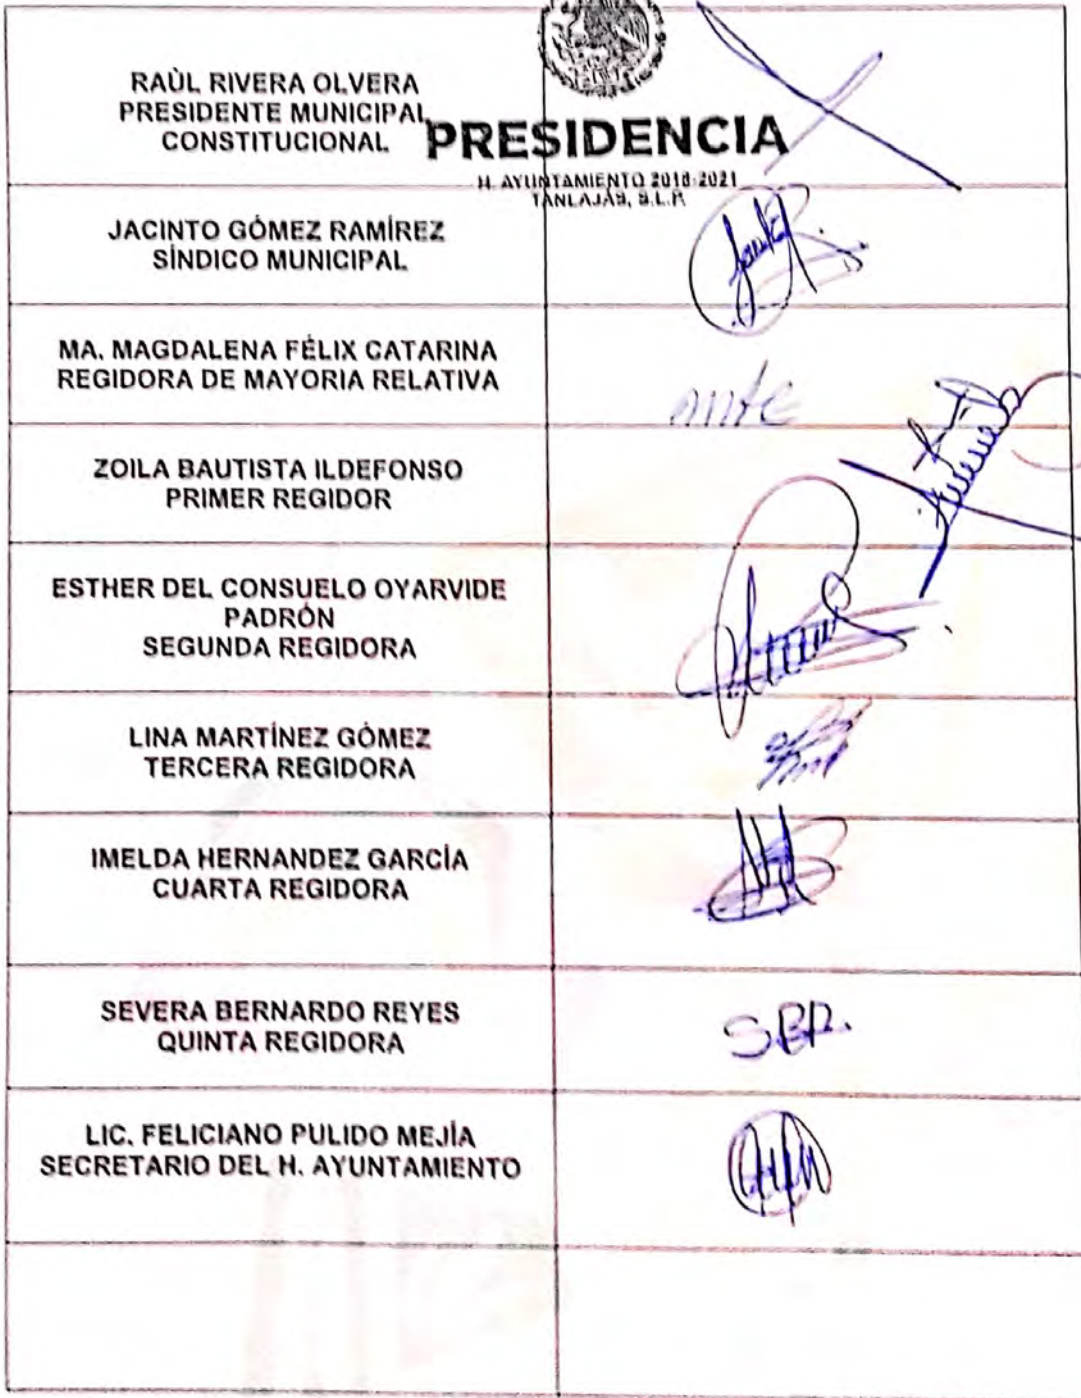 RAÙL RIVERA OLVERA
PRESIDENTE MUNICIPAL
CONSTITUCIONAL
PRESIDENCIA
H. AYUNTAMIENTO 2018-2021
TANLAJÁS, S.L.P.
JACINTO GÓMEZ RAMÍREZ
SÍNDICO MUNICIPAL
MA. MAGDALENA FÉLIX CATARINA
REGIDORA DE MAYORIA RELATIVA
ZOILA BAUTISTA ILDEFONSO
PRIMER REGIDOR
ESTHER DEL CONSUELO OYARVIDE
PADRÓN
SEGUNDA REGIDORA
LINA MARTÍNEZ GÓMEZ
TERCERA REGIDORA
IMELDA HERNANDEZ GARCÍA
CUARTA REGIDORA
SEVERA BERNARDO REYES
QUINTA REGIDORA
SBR.
LIC. FELICIANO PULIDO MEJÍA
SECRETARIO DEL H. AYUNTAMIENTO